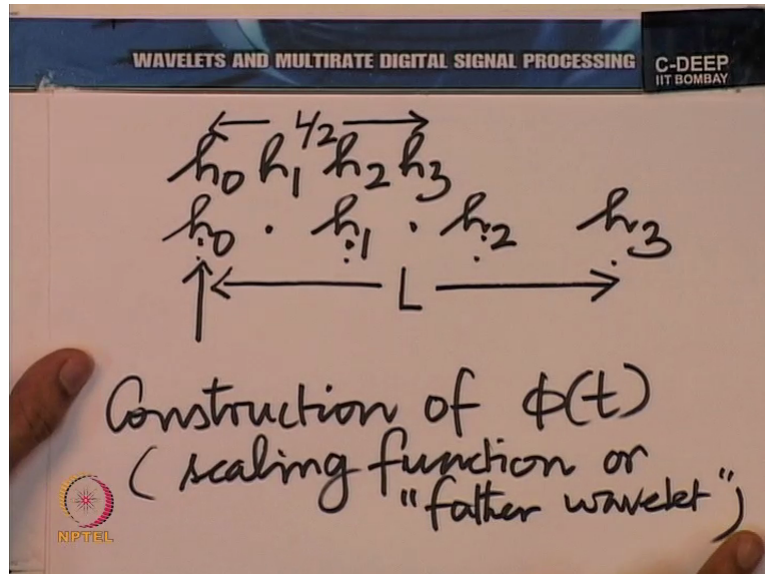 WAVELETS AND MULTIRATE DIGITAL SIGNAL PROCESSING
C-DEEP
IIT BOMBAY
1/2
h0 h1 h2 h3
h0 · h1 · h2 h3
L
Construction of ϕ(t)
(scaling function or
"father wavelet")
NPTEL